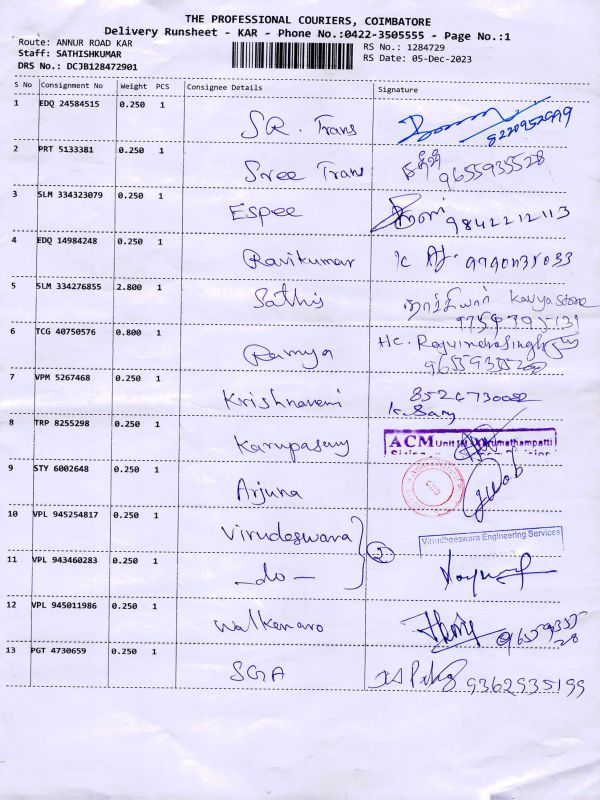 THE PROFESSIONAL COURIERS, COIMBATORE
Delivery Runsheet - KAR - Phone No.:0422-3505555 - Page No.:1
Route: ANNUR ROAD KAR
RS No.: 1284729
Staff: SATHISHKUMAR
RS Date: 05-Dec-2023
DRS No.: DCJB128472901
S No Consignment No Weight PCS Consignee Details Signature
1 EDQ 24584515 0.250 1 SR. Trans
2 PRT 5133381 0.250 1 Sree Trans 9655935528
3 SLM 334323079 0.250 1 Espee 9842212113
4 EDQ 14984248 0.250 1 Ravikumar
5 SLM 334276855 2.800 1 Sathis Kavya Store
6 TCG 40750576 0.800 1 Ramya
7 VPM 5267468 0.250 1 Krishnaveni
8 TRP 8255298 0.250 1 Karupasamy ACM Unit
9 STY 6002648 0.250 1 Arjuna
10 VPL 945254817 0.250 1 Virudeswara 2 Virudheeswara Engineering Services
11 VPL 943460283 0.250 1 - do -
12 VPL 945011986 0.250 1 Walkenaro
13 PGT 4730659 0.250 1 SGA 9362935199